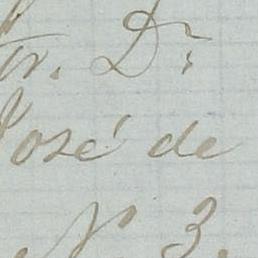 Sr. Dn
José de
Nº 3.